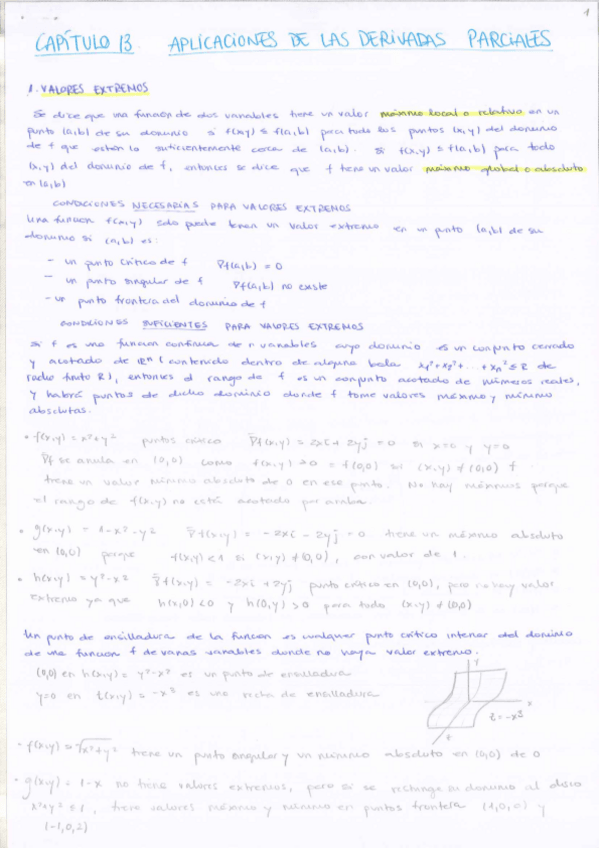 1
CAPÍTULO 13. APLICACIONES DE LAS DERIVADAS PARCIALES
1. VALORES EXTREMOS
Se dice que una función de dos variables tiene un valor máximo local o relativo en un
punto (a,b) de su dominio si f(x,y) ≤ f(a,b) para todo los puntos (x,y) del dominio
de f que estén lo suficientemente cerca de (a,b). Si f(x,y) ≤ f(a,b) para todo
(x,y) del dominio de f, entonces se dice que f tiene un valor máximo global o absoluto
en (a,b)
CONDICIONES NECESARIAS PARA VALORES EXTREMOS
Una función f(x,y) solo puede tener un valor extremo en un punto (a,b) de su
dominio si (a,b) es:
- un punto crítico de f ∇f(a,b) = 0
- un punto singular de f ∇f(a,b) no existe
- un punto frontera del dominio de f
CONDICIONES SUFICIENTES PARA VALORES EXTREMOS
Si f es una función continua de n variables cuyo dominio es un conjunto cerrado
y acotado de ℝⁿ (contenido dentro de alguna bola x₁²+x₂²+...+xₙ² ≤ R de
radio finito R), entonces el rango de f es un conjunto acotado de números reales,
y habrá puntos de dicho dominio donde f tome valores máximo y mínimo
absolutas.
• f(x,y) = x²+y² puntos crítico ∇f(x,y) = 2xi + 2yj = 0 si x=0 y y=0
∇f se anula en (0,0) como f(x,y) > 0 = f(0,0) si (x,y) ≠ (0,0) f
tiene un valor mínimo absoluto de 0 en ese punto. No hay máximos porque
el rango de f(x,y) no está acotado por arriba.
• g(x,y) = 1-x²-y² ∇f(x,y) = -2xi - 2yj = 0 tiene un máximo absoluto
en (0,0) porque f(x,y) < 1 si (x,y) ≠ (0,0), con valor de 1.
• h(x,y) = y²-x² ∇f(x,y) = -2xi + 2yj punto crítico en (0,0), pero no hay valor
extremo ya que h(x,0) < 0 y h(0,y) > 0 para todo (x,y) ≠ (0,0)
Un punto de ensilladura de la función es cualquier punto crítico interior del dominio
de una función f de varias variables donde no haya valor extremo.
(0,0) en h(x,y) = y²-x² es un punto de ensilladura
y=0 en f(x,y) = -x³ es una recta de ensilladura
z = -x³
x
• f(x,y) = √x²+y² tiene un punto singular y un mínimo absoluto en (0,0) de 0
• g(x,y) = 1-x no tiene valores extremos, pero si se restringe su dominio al disco
x²+y² ≤ 1, tiene valores máximo y mínimo en puntos frontera (1,0,0) y
(-1,0,2)